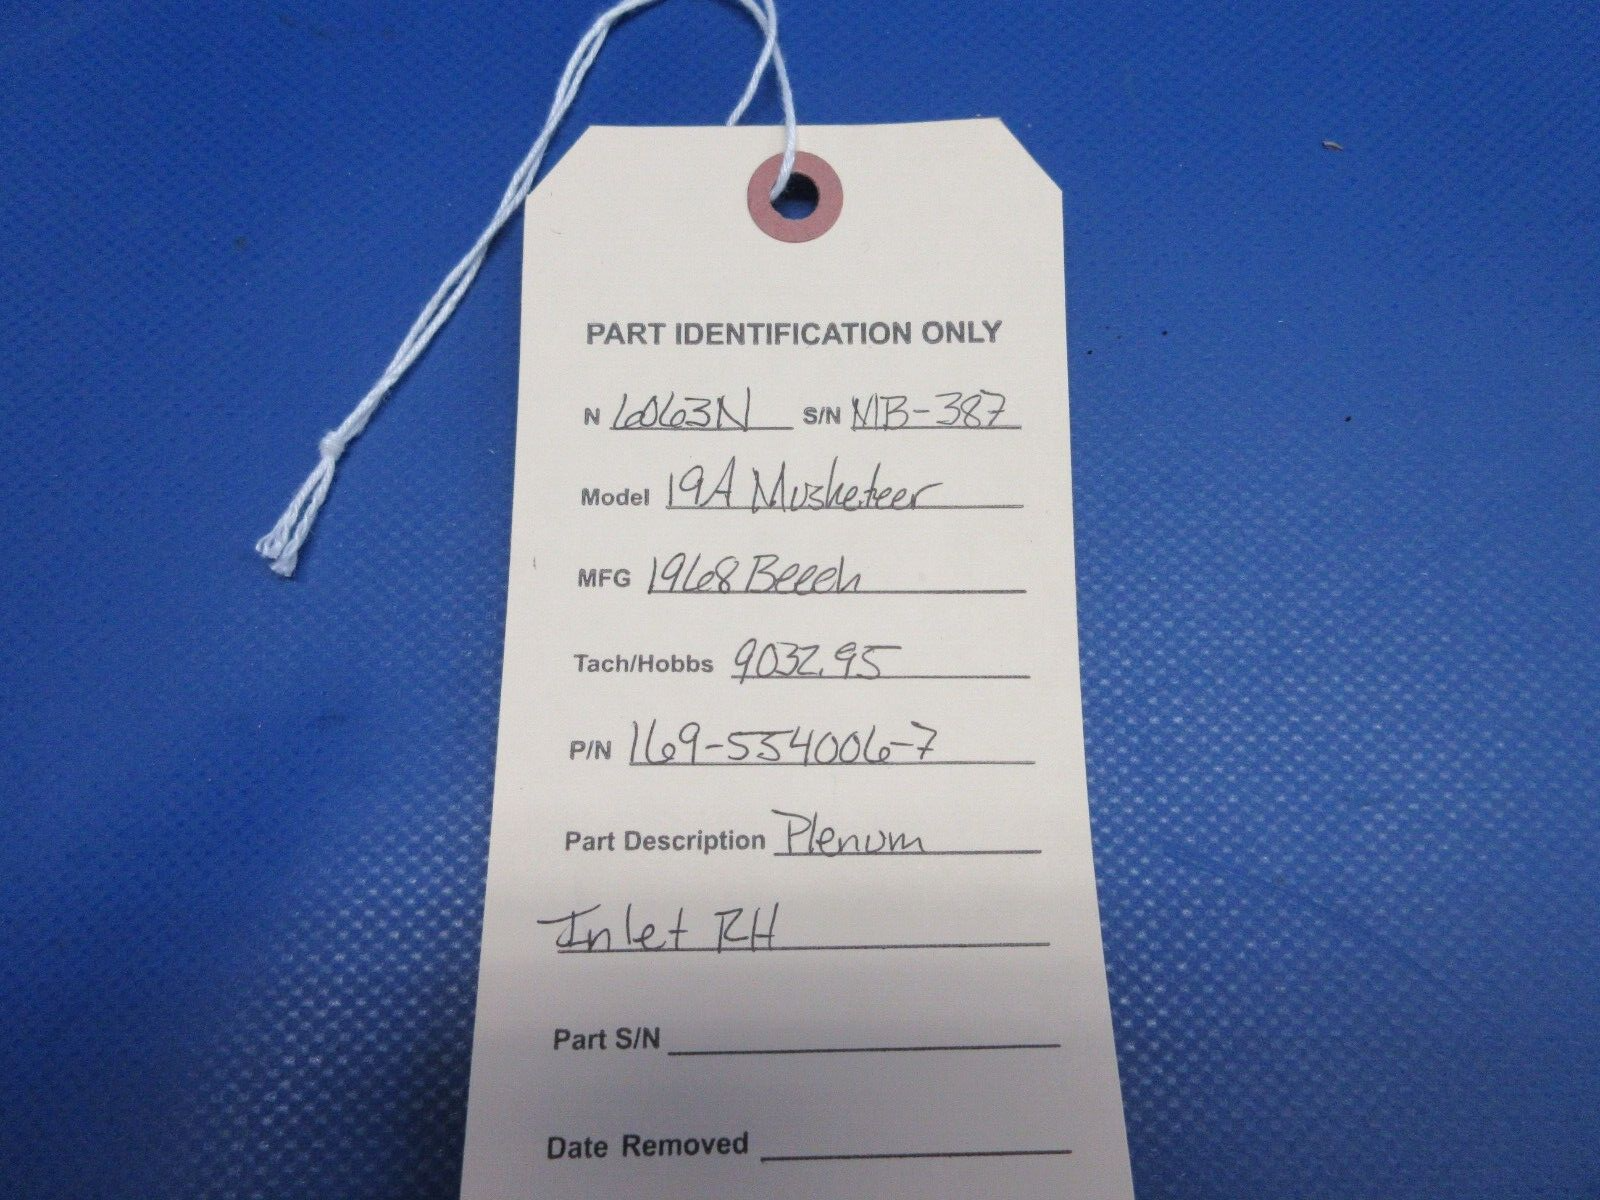 PART IDENTIFICATION ONLY
N 6063N S/N MB-387
Model 19A Musketeer
MFG 1968 Beech
Tach/Hobbs 9032.95
P/N 169-554006-7
Part Description Plenum
Inlet RH
Part S/N
Date Removed